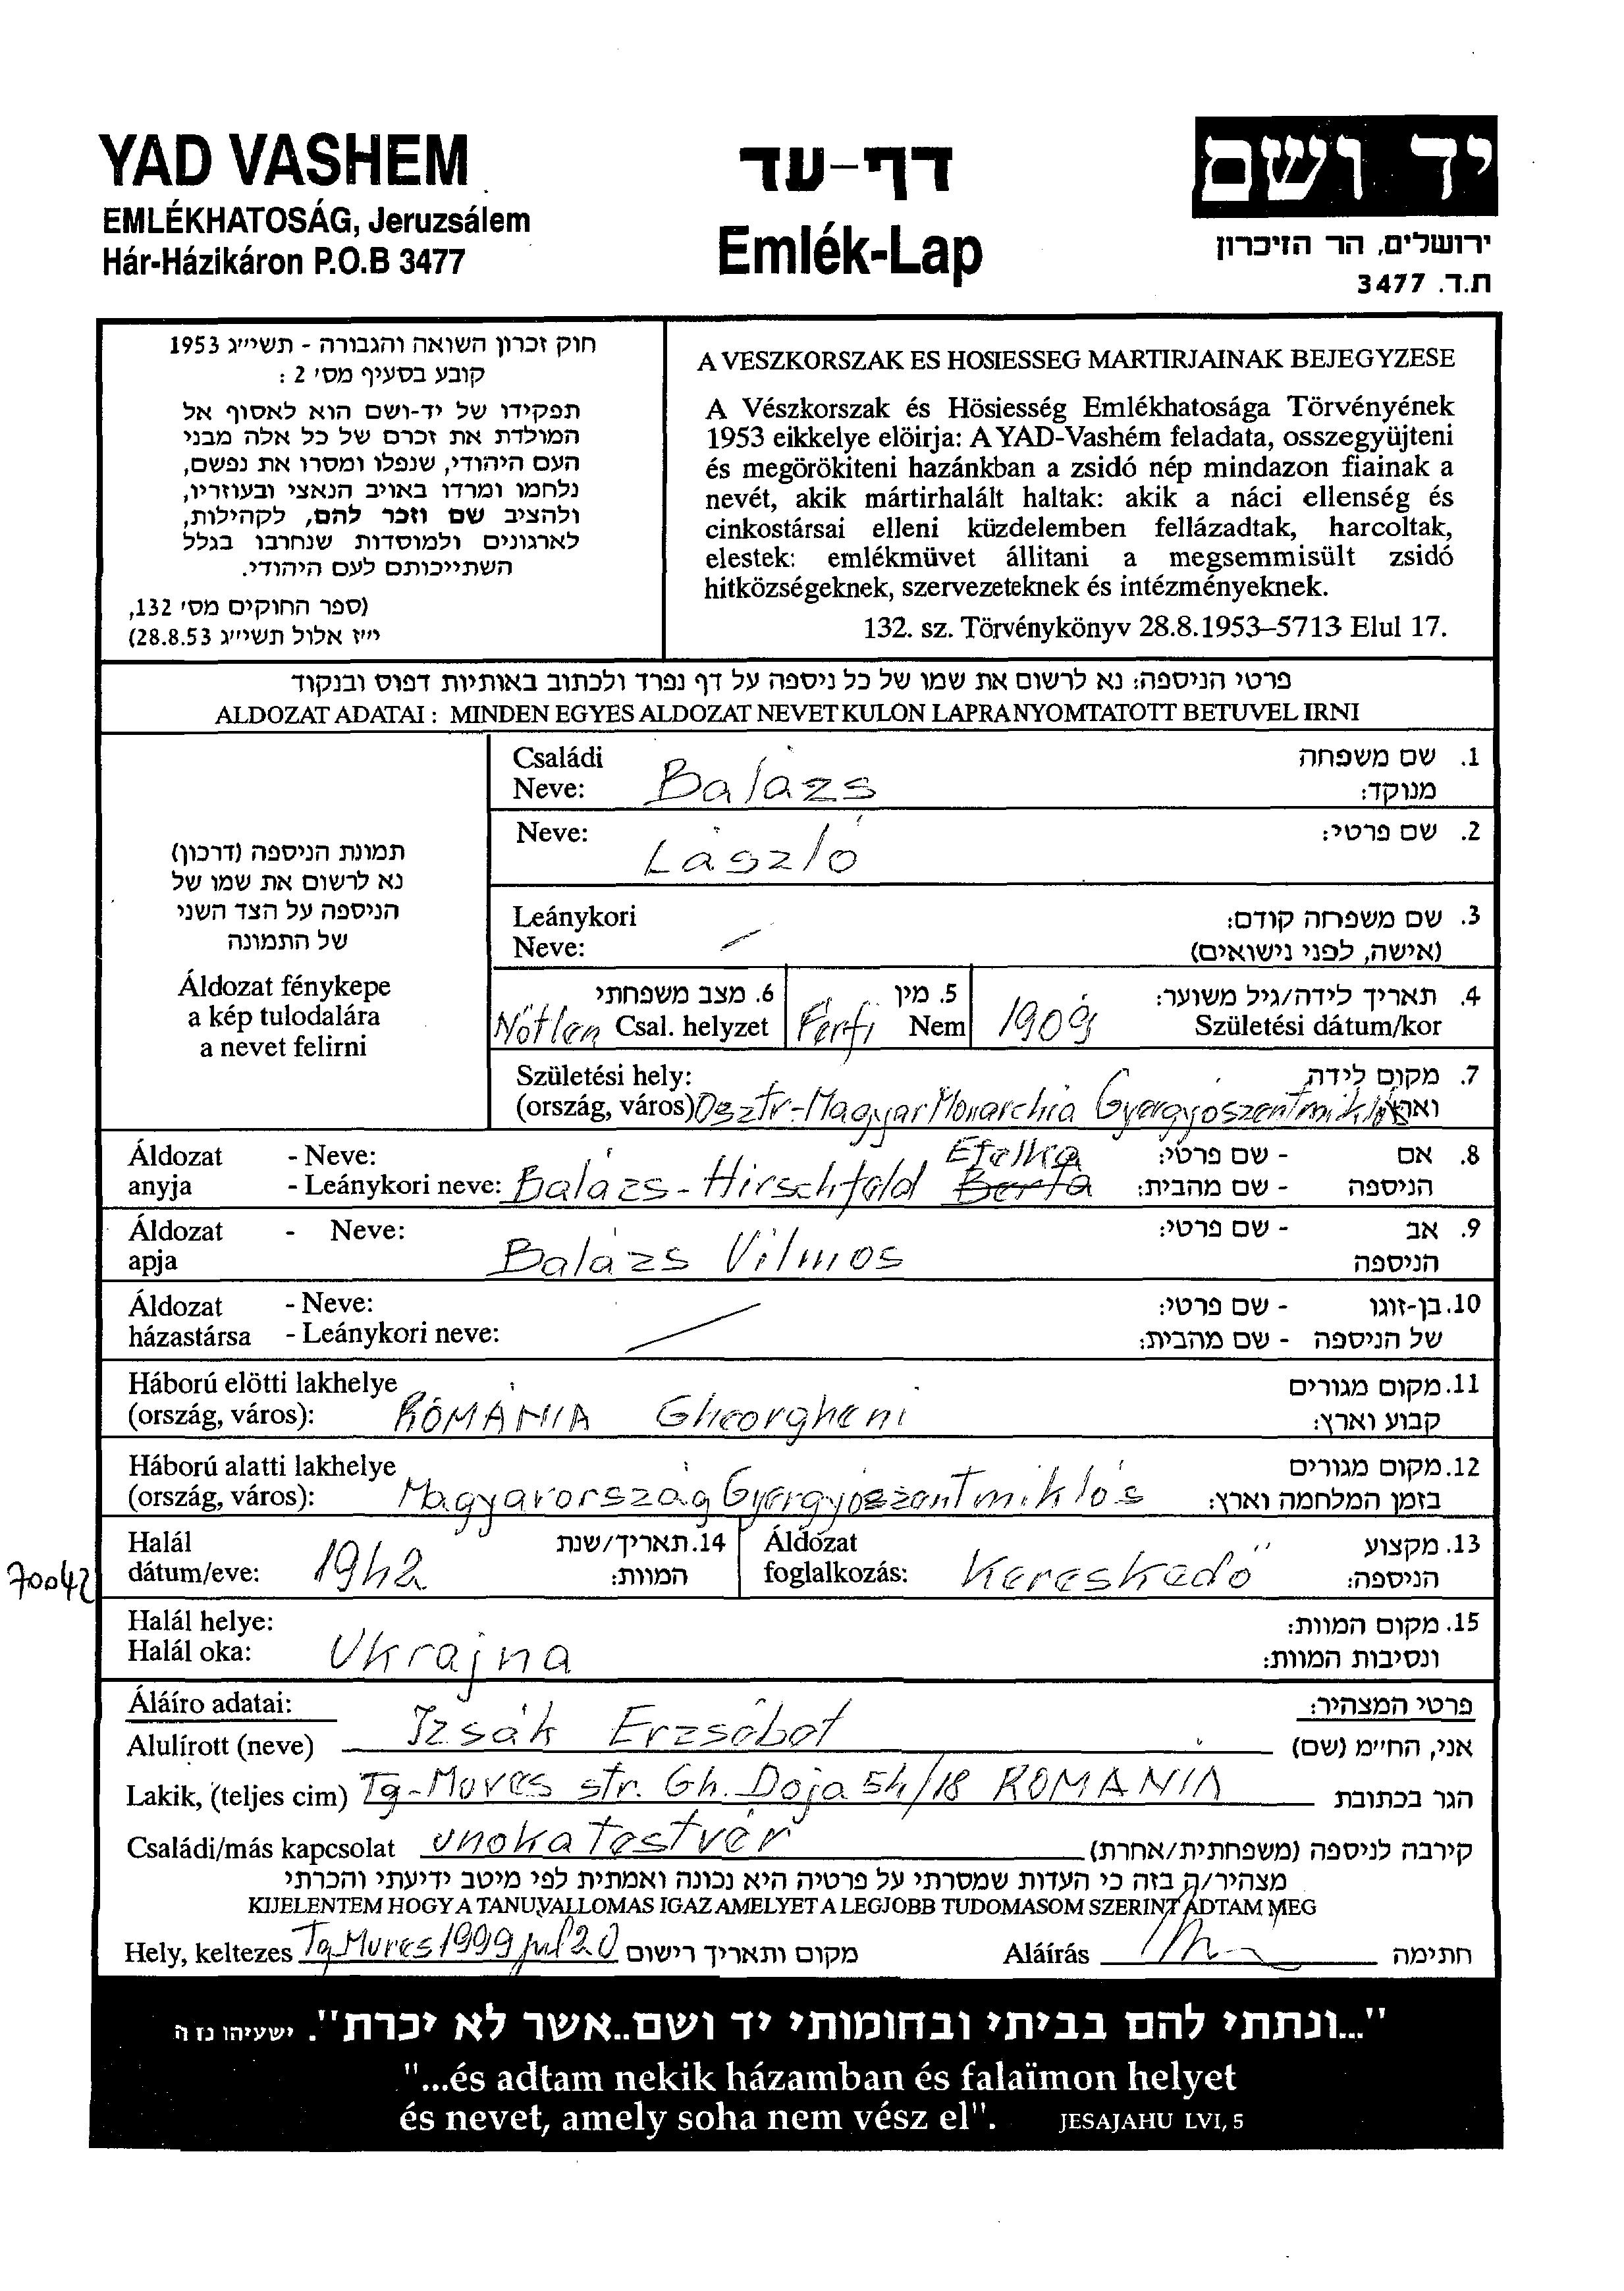 YAD VASHEM
EMLÉKHATOSÁG, Jeruzsálem
Hár-Házikáron P.O.B 3477
דף-עד
Emlék-Lap
יד ושם
ירושלים, הר הזיכרון
ת.ד. 3477
חוק זכרון השואה והגבורה - תשי״ג 1953
קובע בסעיף מס׳ 2 :
תפקידו של יד-ושם הוא לאסוף אל
המולדת את זכרם של כל אלה מבני
העם היהודי, שנפלו ומסרו את נפשם,
נלחמו ומרדו באויב הנאצי ובעוזריו,
ולהציב שם וזכר להם, לקהילות,
לארגונים ולמוסדות שנחרבו בגלל
השתייכותם לעם היהודי.
(ספר החוקים מס׳ 132,
י״ז אלול תשי״ג 28.8.53)
A VESZKORSZAK ES HOSIESSEG MARTIRJAINAK BEJEGYZESE
A Vészkorszak és Hösiesség Emlékhatosága Törvényének
1953 eikkelye elöirja: A YAD-Vashém feladata, osszegyüjteni
és megörökiteni hazánkban a zsidó nép mindazon fiainak a
nevét, akik mártirhalált haltak: akik a náci ellenség és
cinkostársai elleni küzdelemben fellázadtak, harcoltak,
elestek: emlékmüvet állitani a megsemmisült zsidó
hitközségeknek, szervezeteknek és intézményeknek.
132. sz. Törvénykönyv 28.8.1953–5713 Elul 17.
פרטי הניספה: נא לרשום את שמו של כל ניספה על דף נפרד ולכתוב באותיות דפוס ובנקוד
ALDOZAT ADATAI : MINDEN EGYES ALDOZAT NEVET KULON LAPRA NYOMTATOTT BETUVEL IRNI
תמונת הניספה (דרכון)
נא לרשום את שמו של
הניספה על הצד השני
של התמונה
Áldozat fénykepe
a kép tulodalára
a nevet felirni
Családi Neve: Balázs 1. שם משפחה מנוקד:
Neve: László 2. שם פרטי:
Leánykori Neve: – 3. שם משפחה קודם: (אישה, לפני נישואים)
Nőtlen 6. מצב משפחתי Csal. helyzet Férfi 5. מין Nem 1909 4. תאריך לידה/גיל משוער: Születési dátum/kor
Születési hely: 7. מקום לידה
(ország, város) Osztr-Magyar Monarchia Gyergyószentmiklós
Áldozat anyja - Neve: Etelka 8. אם הניספה - שם פרטי:
- Leánykori neve: Balázs-Hirschfeld Berta - שם מהבית:
Áldozat apja - Neve: Balázs Vilmos 9. אב הניספה - שם פרטי:
Áldozat - Neve: 10. בן-זוגו - שם פרטי:
házastársa - Leánykori neve: של הניספה - שם מהבית:
Háború elötti lakhelye 11. מקום מגורים
(ország, város): ROMÁNIA Gheorgheni קבוע וארץ:
Háború alatti lakhelye 12. מקום מגורים
(ország, város): Magyarország Gyergyószentmiklós בזמן המלחמה וארץ:
70042
Halál dátum/eve: 1942 14. תאריך/שנת המוות: Áldozat foglalkozás: Kereskedő 13. מקצוע הניספה:
Halál helye: 15. מקום המוות:
Halál oka: Ukrajna ונסיבות המוות:
Áláíro adatai: פרטי המצהיר:
Alulírott (neve) Izsák Erzsébet אני, החי״מ (שם)
Lakik, (teljes cim) Tg-Mures str. Gh. Doja 54/18 ROMANIA הגר בכתובת
Családi/más kapcsolat unokatestvér קירבה לניספה (משפחתית/אחרת)
מצהיר/ה בזה כי העדות שמסרתי על פרטיה היא נכונה ואמתית לפי מיטב ידיעתי והכרתי
KIJELENTEM HOGY A TANUVALLOMAS IGAZ AMELYET A LEGJOBB TUDOMASOM SZERINT ADTAM MEG
Hely, keltezes Tg. Mures 1999 jul 20 מקום ותאריך רישום Aláírás חתימה
"...ונתתי להם בביתי ובחומותי יד ושם..אשר לא יכרת". ישעיהו נז ה
"...és adtam nekik házamban és falaïmon helyet
és nevet, amely soha nem vész el". JESAJAHU LVI, 5